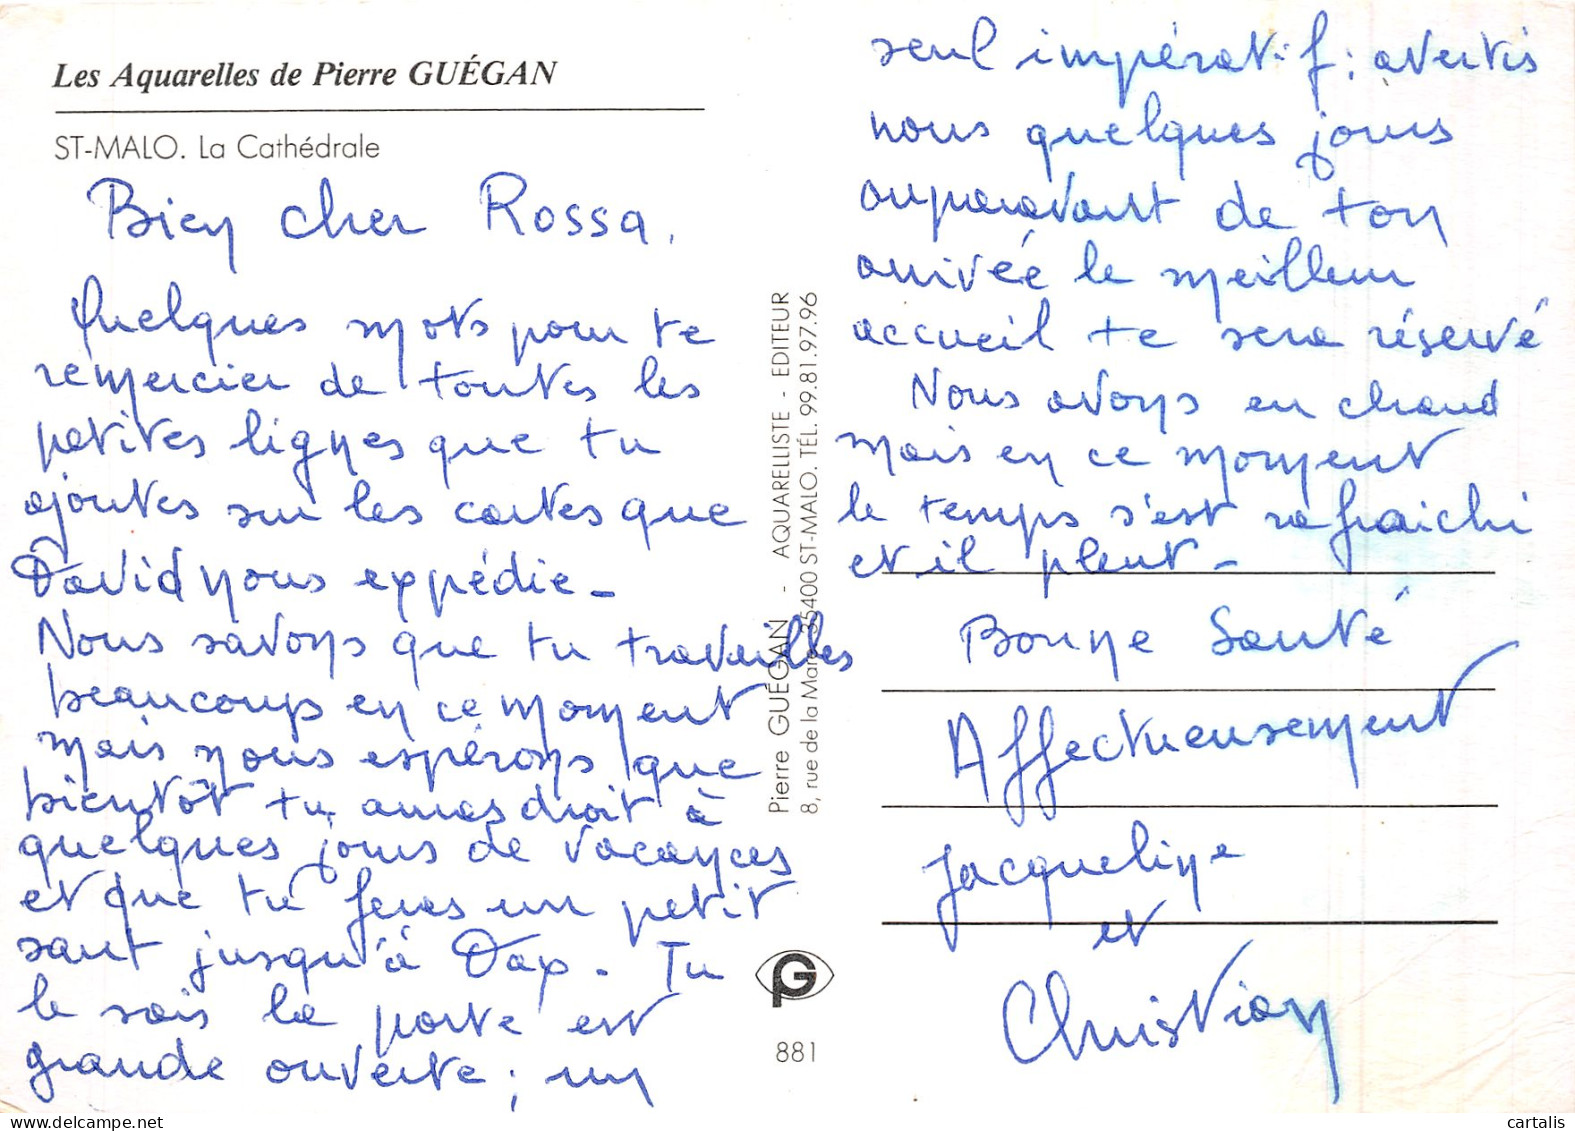 Les Aquarelles de Pierre GUÉGAN
ST-MALO. La Cathédrale
Bien cher Rossa,
Quelques mots pour te
remercier de toutes les
petites lignes que tu
ajoutes sur les cartes que
David nous expédie_
Nous savons que tu travailles
beaucoup en ce moment
mais nous espérons que
bientôt tu auras droit à
quelques jours de vacances
et que tu feras un petit
saut jusqu'à Dax. Tu
le sais la porte est
grande ouverte ; un
seul impératif : avertis
nous quelques jours
auparavant de ton
arrivée le meilleur
accueil te sera réservé
Nous avons eu chaud
mais en ce moment
le temps s'est rafraichi
et il pleut_
Bonne Santé
Affectueusement
Jacqueline
et
Christian
Pierre GUÉGAN - AQUARELLISTE - EDITEUR
8, rue de la Mare 35400 ST-MALO. TÉL. 99.81.97.96
PG
881
cartalis